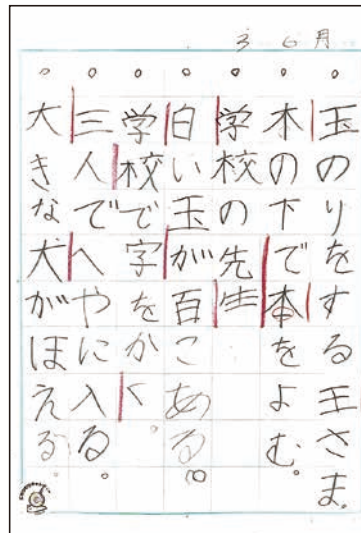 3 6月
玉のりをする王さま。
木の下で本をよむ。
学校の先生
白い玉が百こある。
学校で字をかく。
三人でへやに入る。
大きな犬がほえる。